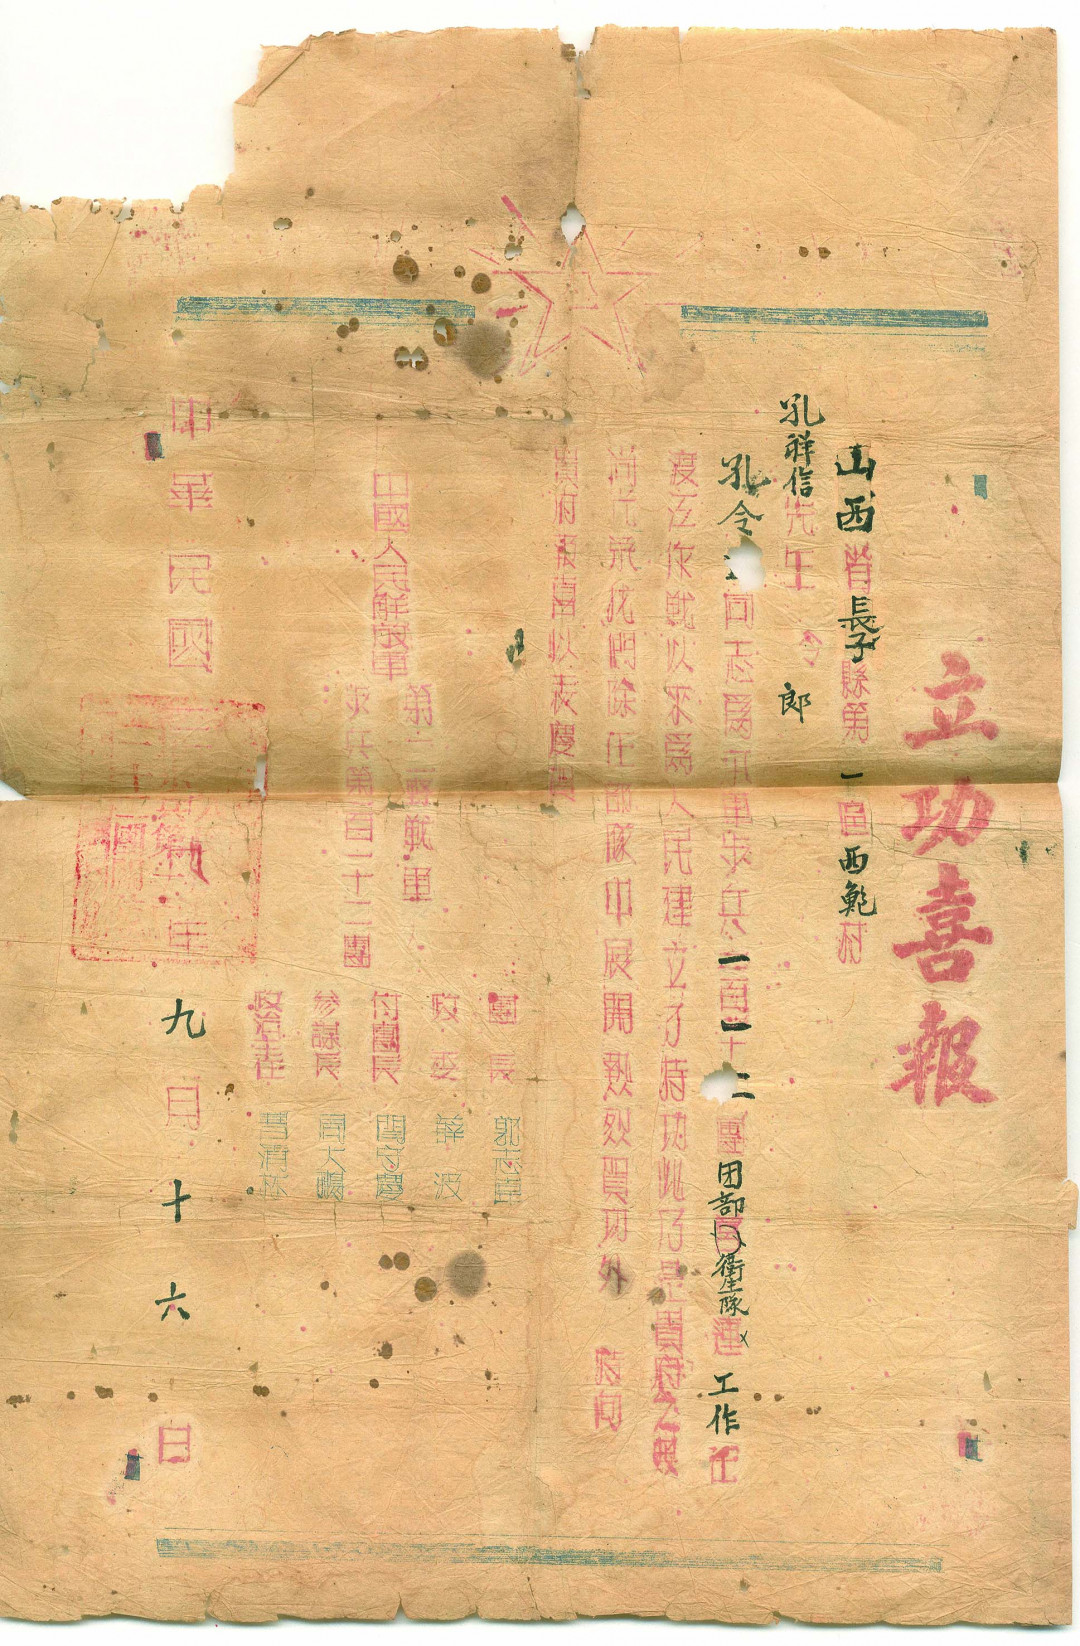 立功喜報
山西省長子縣第一區西鲍村
孔祥信先生
令郎
孔令同志為我軍步兵一百一十二團团部衛生隊連工作在
渡江作战以来為人民建立了特功此乃是貴府之興
尚亢我們除在部隊中展開熱烈賀功外 特向
貴府報喜以表慶賀
中國人民解放軍
第二野戰軍
步兵第百一十二團
團長 郭志
政委 薛波
付團長 閻守慶
參謀長 周大
政治主任
中華民國年九月十六日